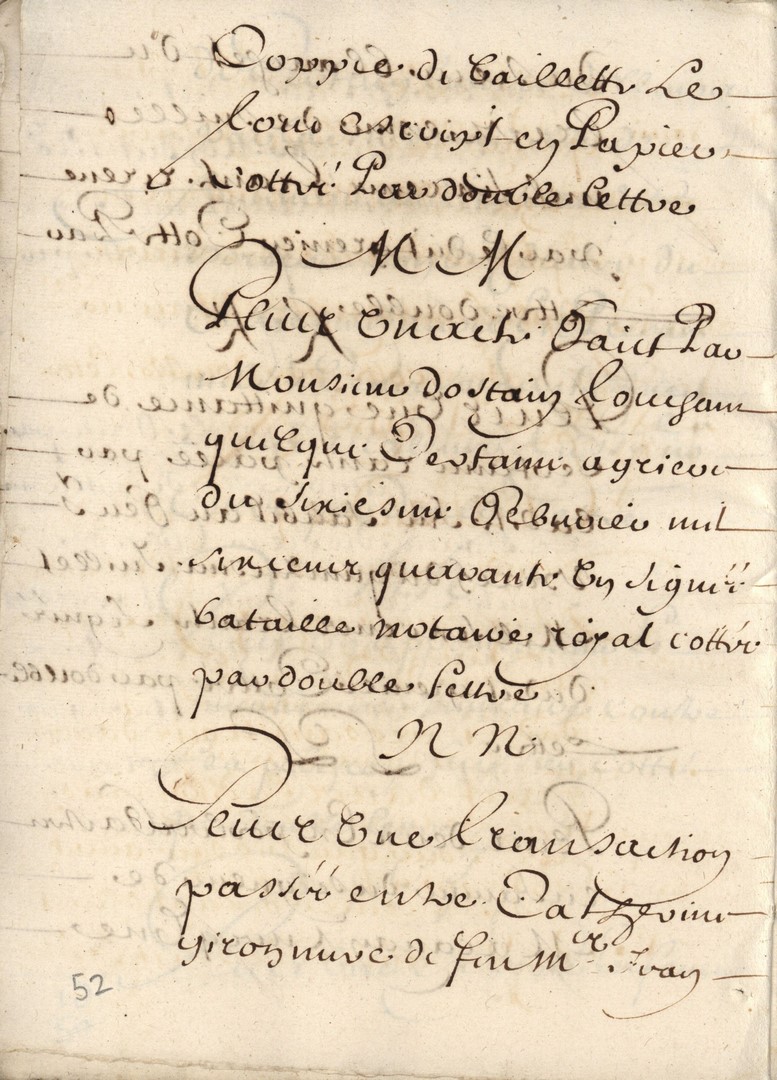 Coppie de Caillette Le
tout Escript en Papier
Cotté Par double Lettre
M M
Plus Un acte faict Par
Monsieur dostain
quelque Certaine
du sixiesme febvrier mil
six cens quarante Un signée
bataille notaire royal cottée
par double Lettre
N N
Plus Une transaction
passée entre Catherine
de feu Mer Jean
52